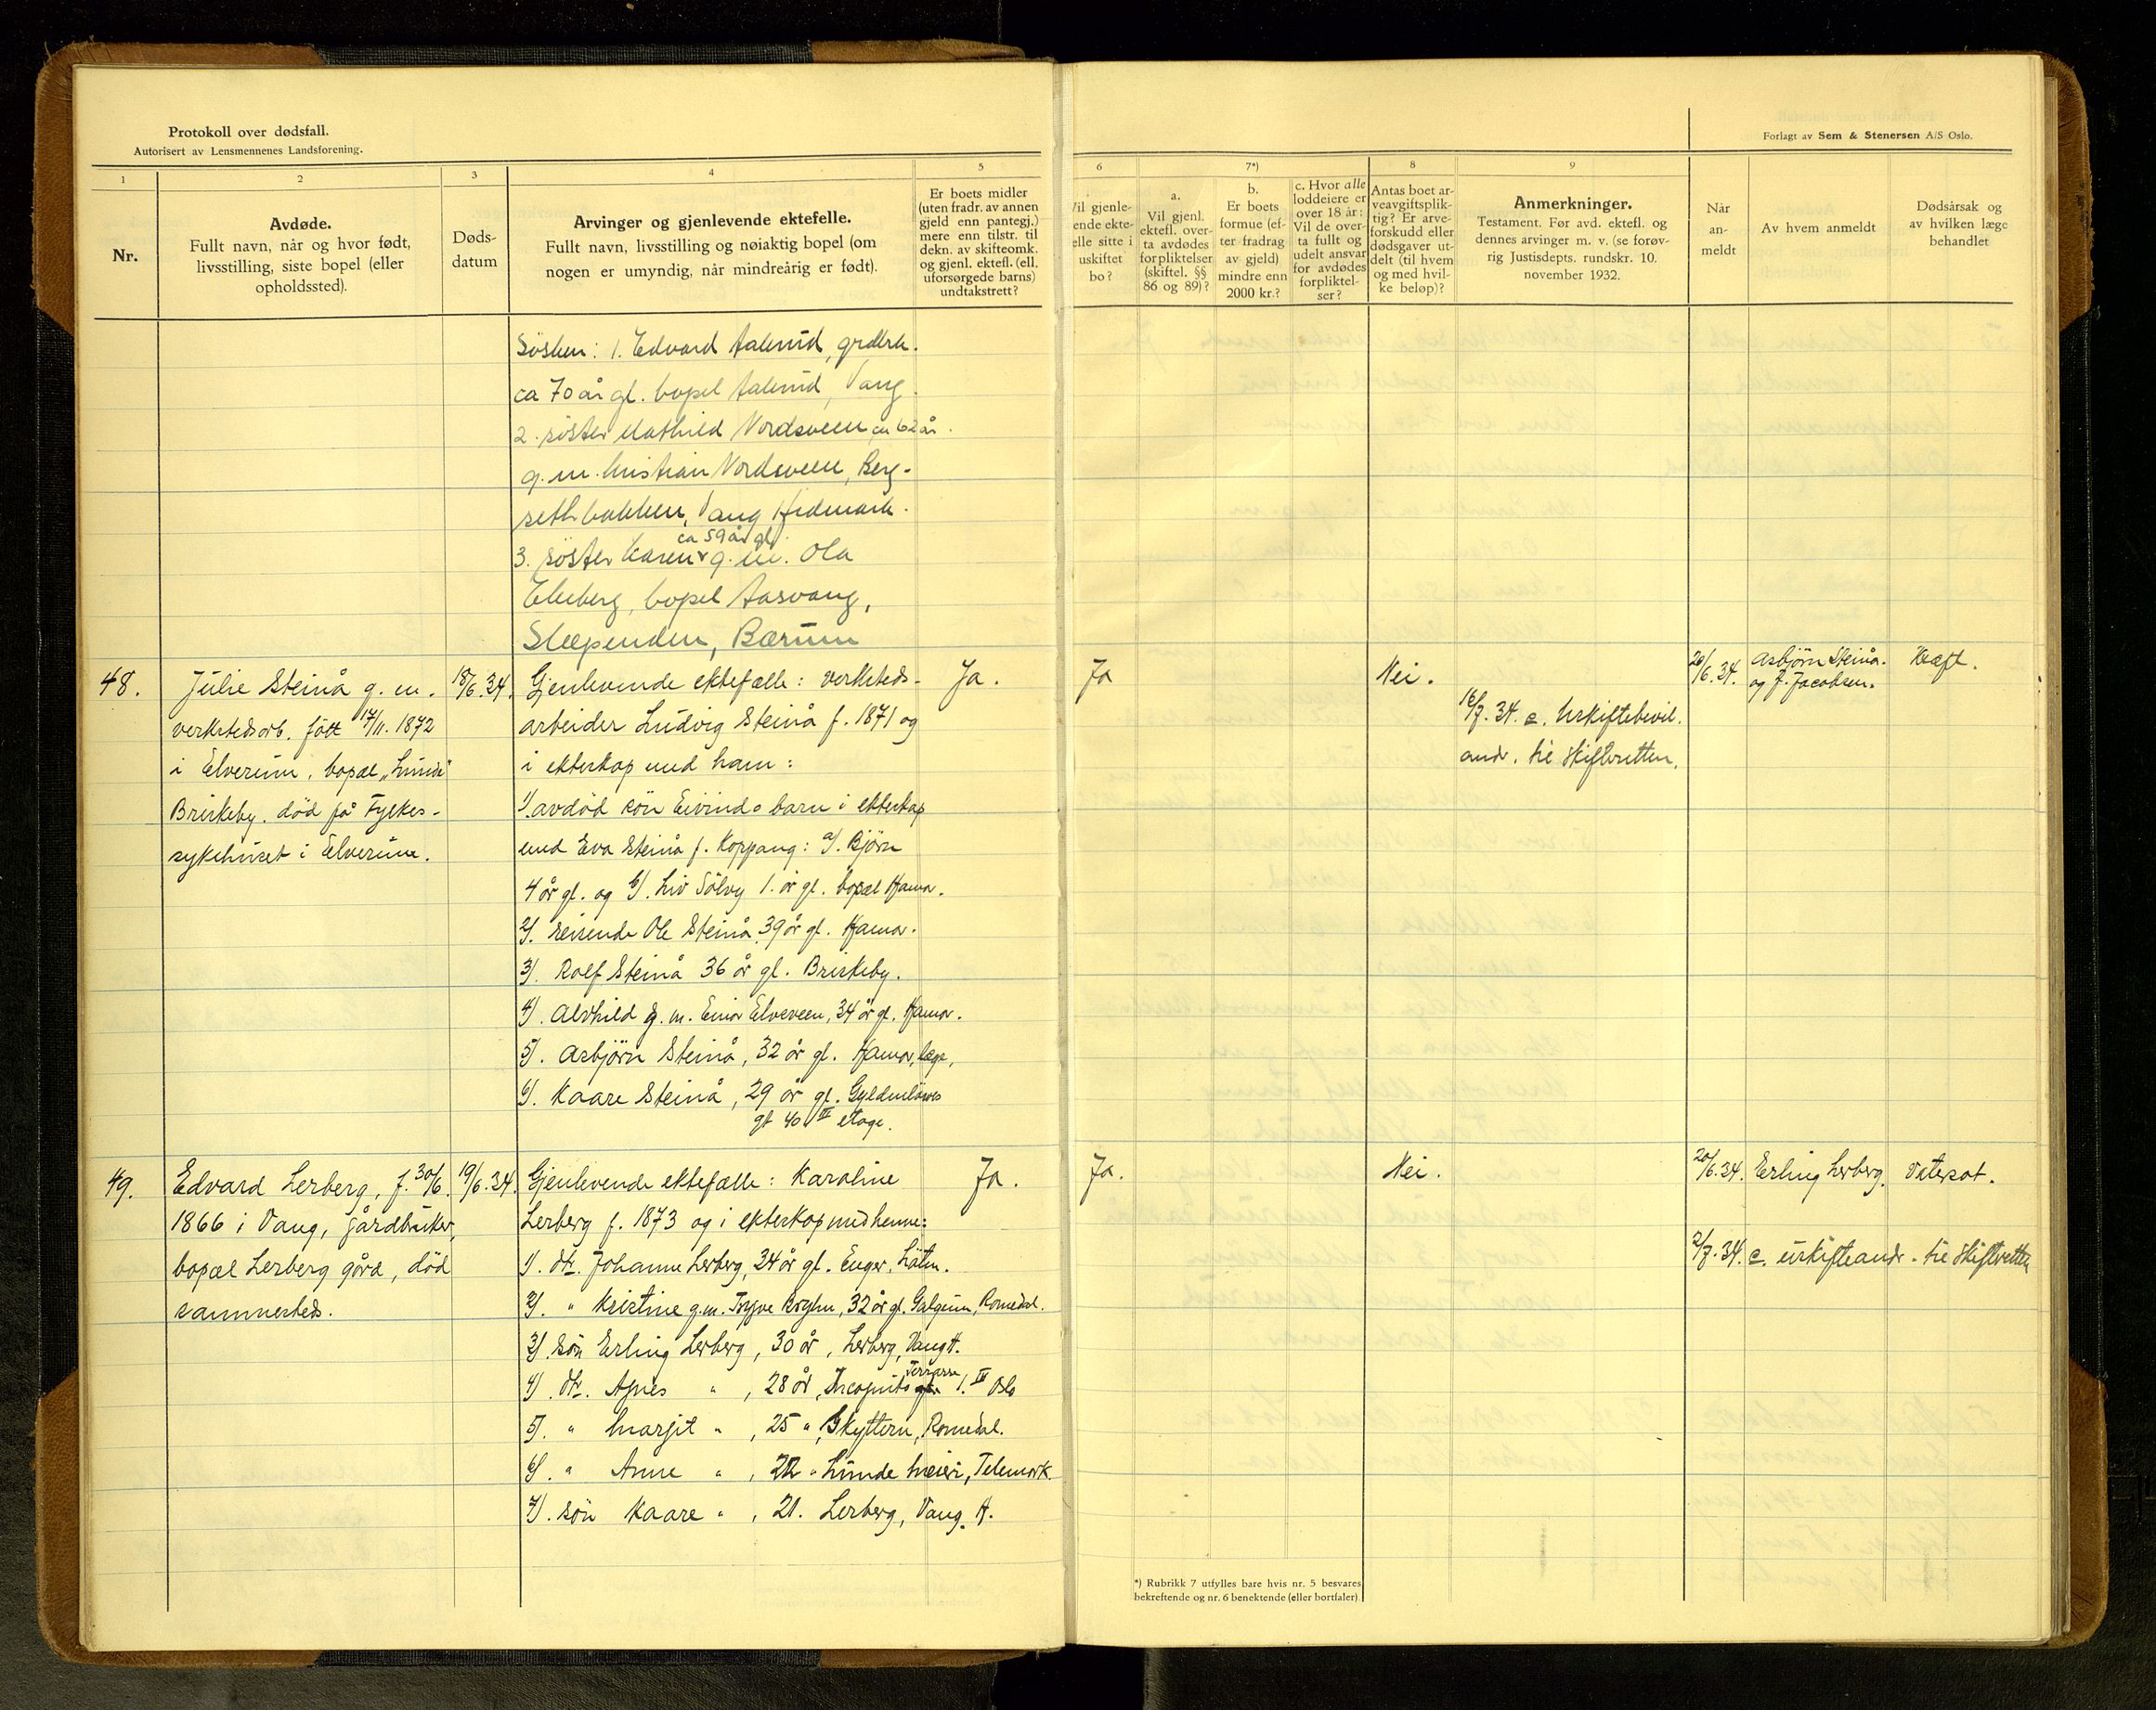 Protokoll over dødsfall.
Autorisert av Lensmennenes Landsforening.
Forlagt av Sem & Stenersen A/S Oslo.
1
2
3
4
5
6
7*)
8
9
Nr.
Avdøde.
Fullt navn, når og hvor født,
livsstilling, siste bopel (eller
opholdssted).
Døds-
datum
Arvinger og gjenlevende ektefelle.
Fullt navn, livsstilling og nøiaktig bopel (om
nogen er umyndig, når mindreårig er født).
Er boets midler
(uten fradr. av annen
gjeld enn pantegj.)
mere enn tilstr. til
dekn. av skifteomk.
og gjenl. ektefl. (ell.
uforsørgede barns)
undtakstrett?
Vil gjenle-
ende ekte-
elle sitte i
uskiftet
bo?
a.
Vil gjenl.
ektefl. over-
ta avdødes
forpliktelser
(skiftel. §§
86 og 89)?
b.
Er boets
formue (ef-
ter fradrag
av gjeld)
mindre enn
2000 kr.?
c. Hvor alle
loddeiere er
over 18 år:
Vil de over-
ta fullt og
udelt ansvar
for avdødes
forpliktel-
ser?
Antas boet ar-
veavgiftsplik-
tig? Er arve-
forskudd eller
dødsgaver ut-
delt (til hvem
og med hvil-
ke beløp)?
Anmerkninger.
Testament. Før avd. ektefl. og
dennes arvinger m. v. (se forøv-
rig Justisdepts. rundskr. 10.
november 1932.
Når
an-
meldt
Av hvem anmeldt
Dødsårsak og
av hvilken læge
behandlet
Søsken: 1. Edvard Aalerud, grdbrk.
ca 70 år gl. bopel Aalerud, Vang.
2. søster Mathild Nordsveen ca 62 år.
g. m. Kristian Nordsveen, Berg-
sethbakken, Vang Hedmark.
ca 59 år gl.
3. søster Karen g. m. Ola
Ekeberg, bopel Aasvang,
Slependen, Bærum
48.
Julie Steinå g. m.
verkstedsarb. født 17/11. 1872
i Elverum, bopæl „Lunde"
Briskeby. død på Fylkes-
sykehuset i Elverum.
18/6.34.
Gjenlevende ektefælle: verksteds-
arbeider Ludvig Steinå f. 1871 og
i ekteskap med ham:
1/. avdød søn Eivinds barn i ekteskap
med Eva Steinå f. Koppang: a/. Bjørn
4 år gl. og b/. Liv Sølvy 1. år gl. bopæl Hamar.
2/. reisende Ole Steinå 39 år gl. Hamar.
3/. Rolf Steinå 36 år gl. Briskeby.
4/. Alvhild g. m. Einar Elveveen, 34 år gl. Hamar.
5/. Asbjørn Steinå, 32 år gl. Hamar, læge,
6/. Kaare Steinå, 29 år gl. Gyldenløves
gt 40 IV etage.
Ja.
Ja
Nei.
16/7. 34. s. Uskiftebevil.
andr. til Skifteretten.
20/6.34.
Asbjørn Steinå.
og J. Jacobsen.
Kræft.
49.
Edvard Lerberg, f. 30/6.
1866 i Vang, gårdbruker,
bopæl Lerberg gård, død
sammesteds.
19/6.34.
Gjenlevende ektefælle: Karoline
Lerberg f. 1873 og i ekteskap med henne:
1/. dtr. Johanne Lerberg, 34 år gl. Enger, Løten.
2/. " Kristine g.m. Trygve Bryhn, 32 år gl. Galgum, Romedal.
3/. søn Erling Lerberg, 30 år, Lerberg, Vang H.
4/. dtr. Agnes " , 28 år, Incognito Terrasse 1. IV Oslo
5/. " Margit " , 25 " , Skyttern, Romedal.
6/. " Anne " , 22 " Lunde meieri, Telemark.
7/. søn Kaare " , 21. Lerberg, Vang. H.
Ja.
Ja.
Nei.
20/6.34.
Erling Lerberg.
2/7.34. s. uskifteandr. til Skifteretten
*) Rubrikk 7 utfylles bare hvis nr. 5 besvares
bekreftende og nr. 6 benektende (eller bortfaler).